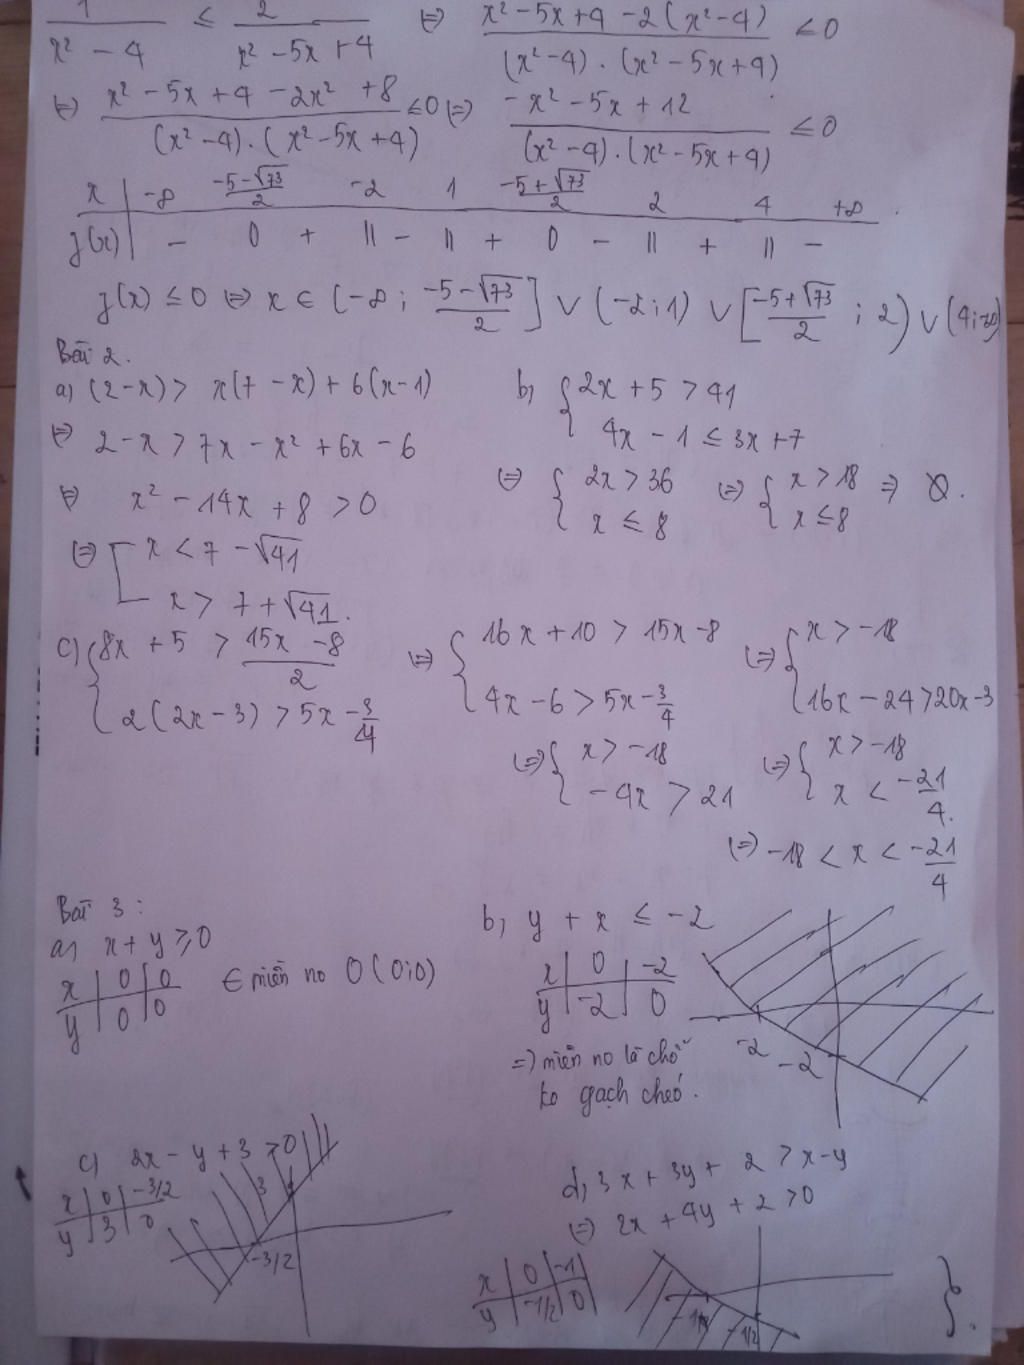 1/(x² - 4) ≤ 2/(x² - 5x + 4) ⇔ (x² - 5x + 4 - 2(x² - 4))/((x² - 4).(x² - 5x + 4)) ≤ 0
⇔ (x² - 5x + 4 - 2x² + 8)/((x² - 4).(x² - 5x + 4)) ≤ 0 ⇔ (-x² - 5x + 12)/((x² - 4).(x² - 5x + 4)) ≤ 0
x | -∞ (-5-√73)/2 -2 1 (-5+√73)/2 2 4 +∞
f(x) | - 0 + || - || + 0 - || + || -
f(x) ≤ 0 ⇔ x ∈ (-∞; (-5-√73)/2] ∨ (-2;1) ∨ [(-5+√73)/2; 2) ∨ (4;+∞)
Bài 2.
a) (2-x) > x(7-x) + 6(x-1)
⇔ 2 - x > 7x - x² + 6x - 6
⇔ x² - 14x + 8 > 0
⇔ [ x < 7 - √41
x > 7 + √41.
b) { 2x + 5 > 41
4x - 1 ≤ 3x + 7
⇔ { 2x > 36 ⇔ { x > 18 ⇒ ∅.
x ≤ 8 x ≤ 8
c) { 8x + 5 > (15x - 8)/2 ⇔ { 16x + 10 > 15x - 8 ⇔ { x > -18
2(2x - 3) > 5x - 3/4 4x - 6 > 5x - 3/4 16x - 24 > 20x - 3
⇔ { x > -18 ⇔ { x > -18
-4x > 21 x < -21/4.
⇔ -18 < x < -21/4
Bài 3:
a) x + y ≥ 0
x | 0 | 0
y | 0 | 0
∈ miền no O(0;0)
b) y + x ≤ -2
x | 0 | -2
y | -2 | 0
⇒ miền no là chỗ
ko gạch chéo.
-2
-2
c) 2x - y + 3 > 0
x | 0 | -3/2
y | 3 | 0
3
-3/2
d) 3x + 3y + 2 > x - y
⇔ 2x + 4y + 2 > 0
x | 0 | -1
y | -1/2 | 0
-1/2